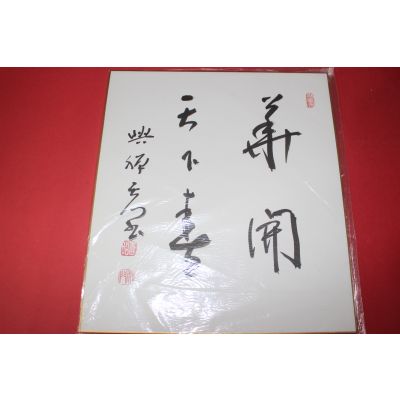 華開
天下春
興禅